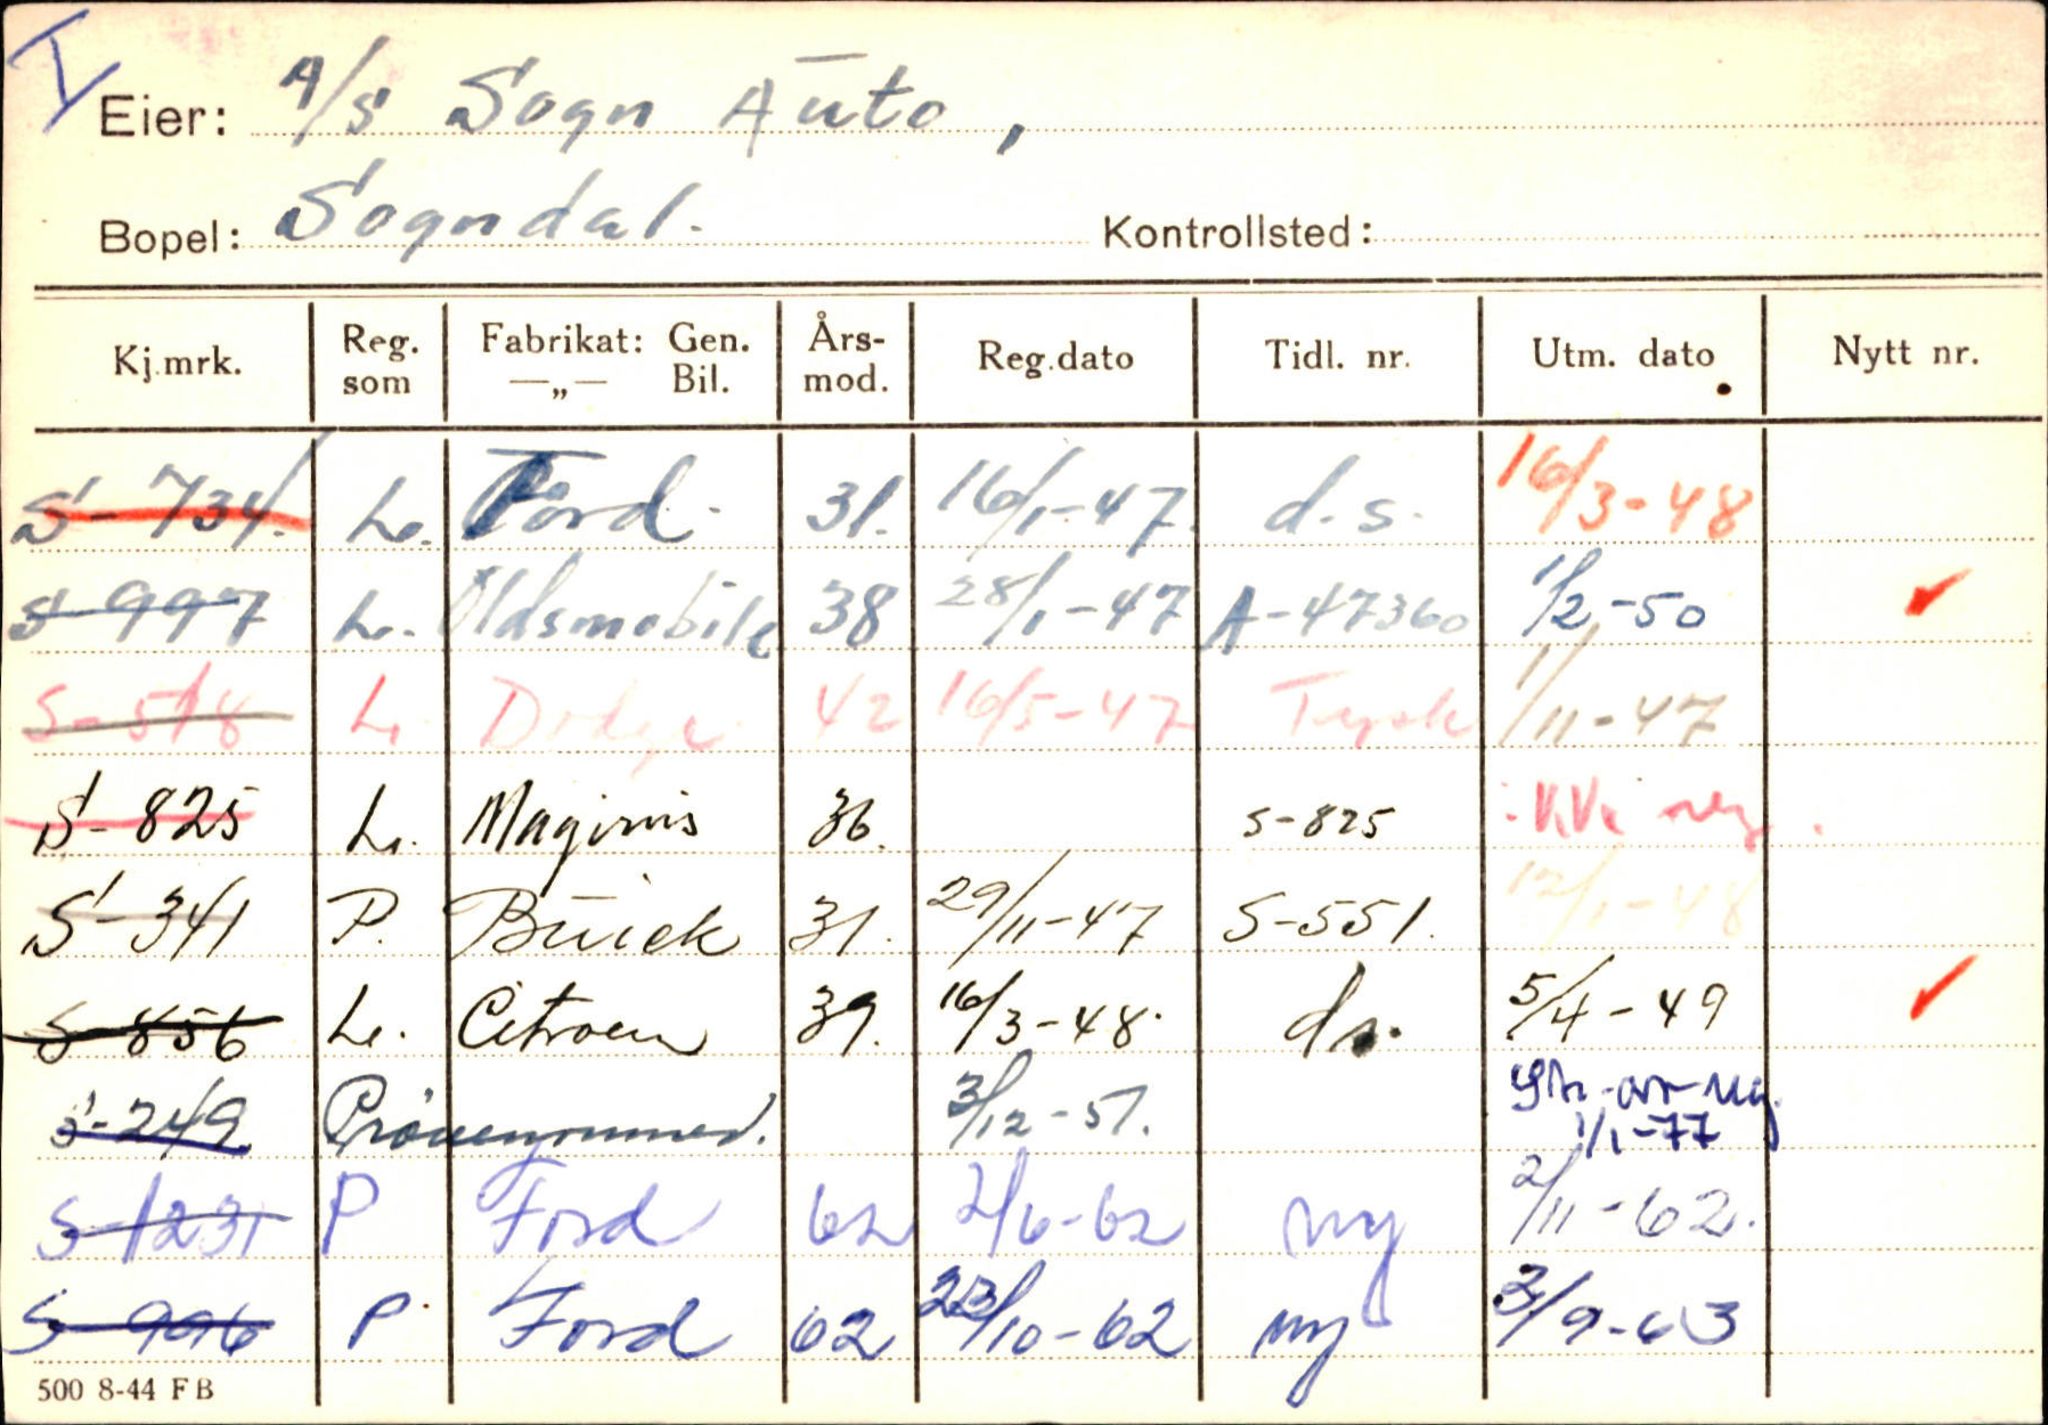 I
Eier: A/s Sogn Auto,
Bopel: Sogndal. Kontrollsted:
Kj.mrk. Reg. som Fabrikat: Gen. —„— Bil. Års-mod. Reg.dato Tidl. nr. Utm. dato Nytt nr.
S-734. L. Ford. 31. 16/1-47. d.s. 16/3-48
S-997 L. Oldsmobile 38 28/1-47 A-47360 1/2-50 ✓
S-518 L. Dodge 42 16/5-47 Tysk 1/11-47
S-825 L. Magirus 36. S-825
S-341 P. Buick 31. 29/11-47 S-551. 12/1-48
S-856 L. Citroen 39. 16/3-48. ds. 5/4-49 ✓
S-249 Prövenummer. 3/12-51. Str. av reg. 1/1-77
S-1231 P Ford 62 2/6-62 ny 2/11-62.
S-996 P. Ford 62 23/10-62 ny 3/9-63
500 8-44 FB